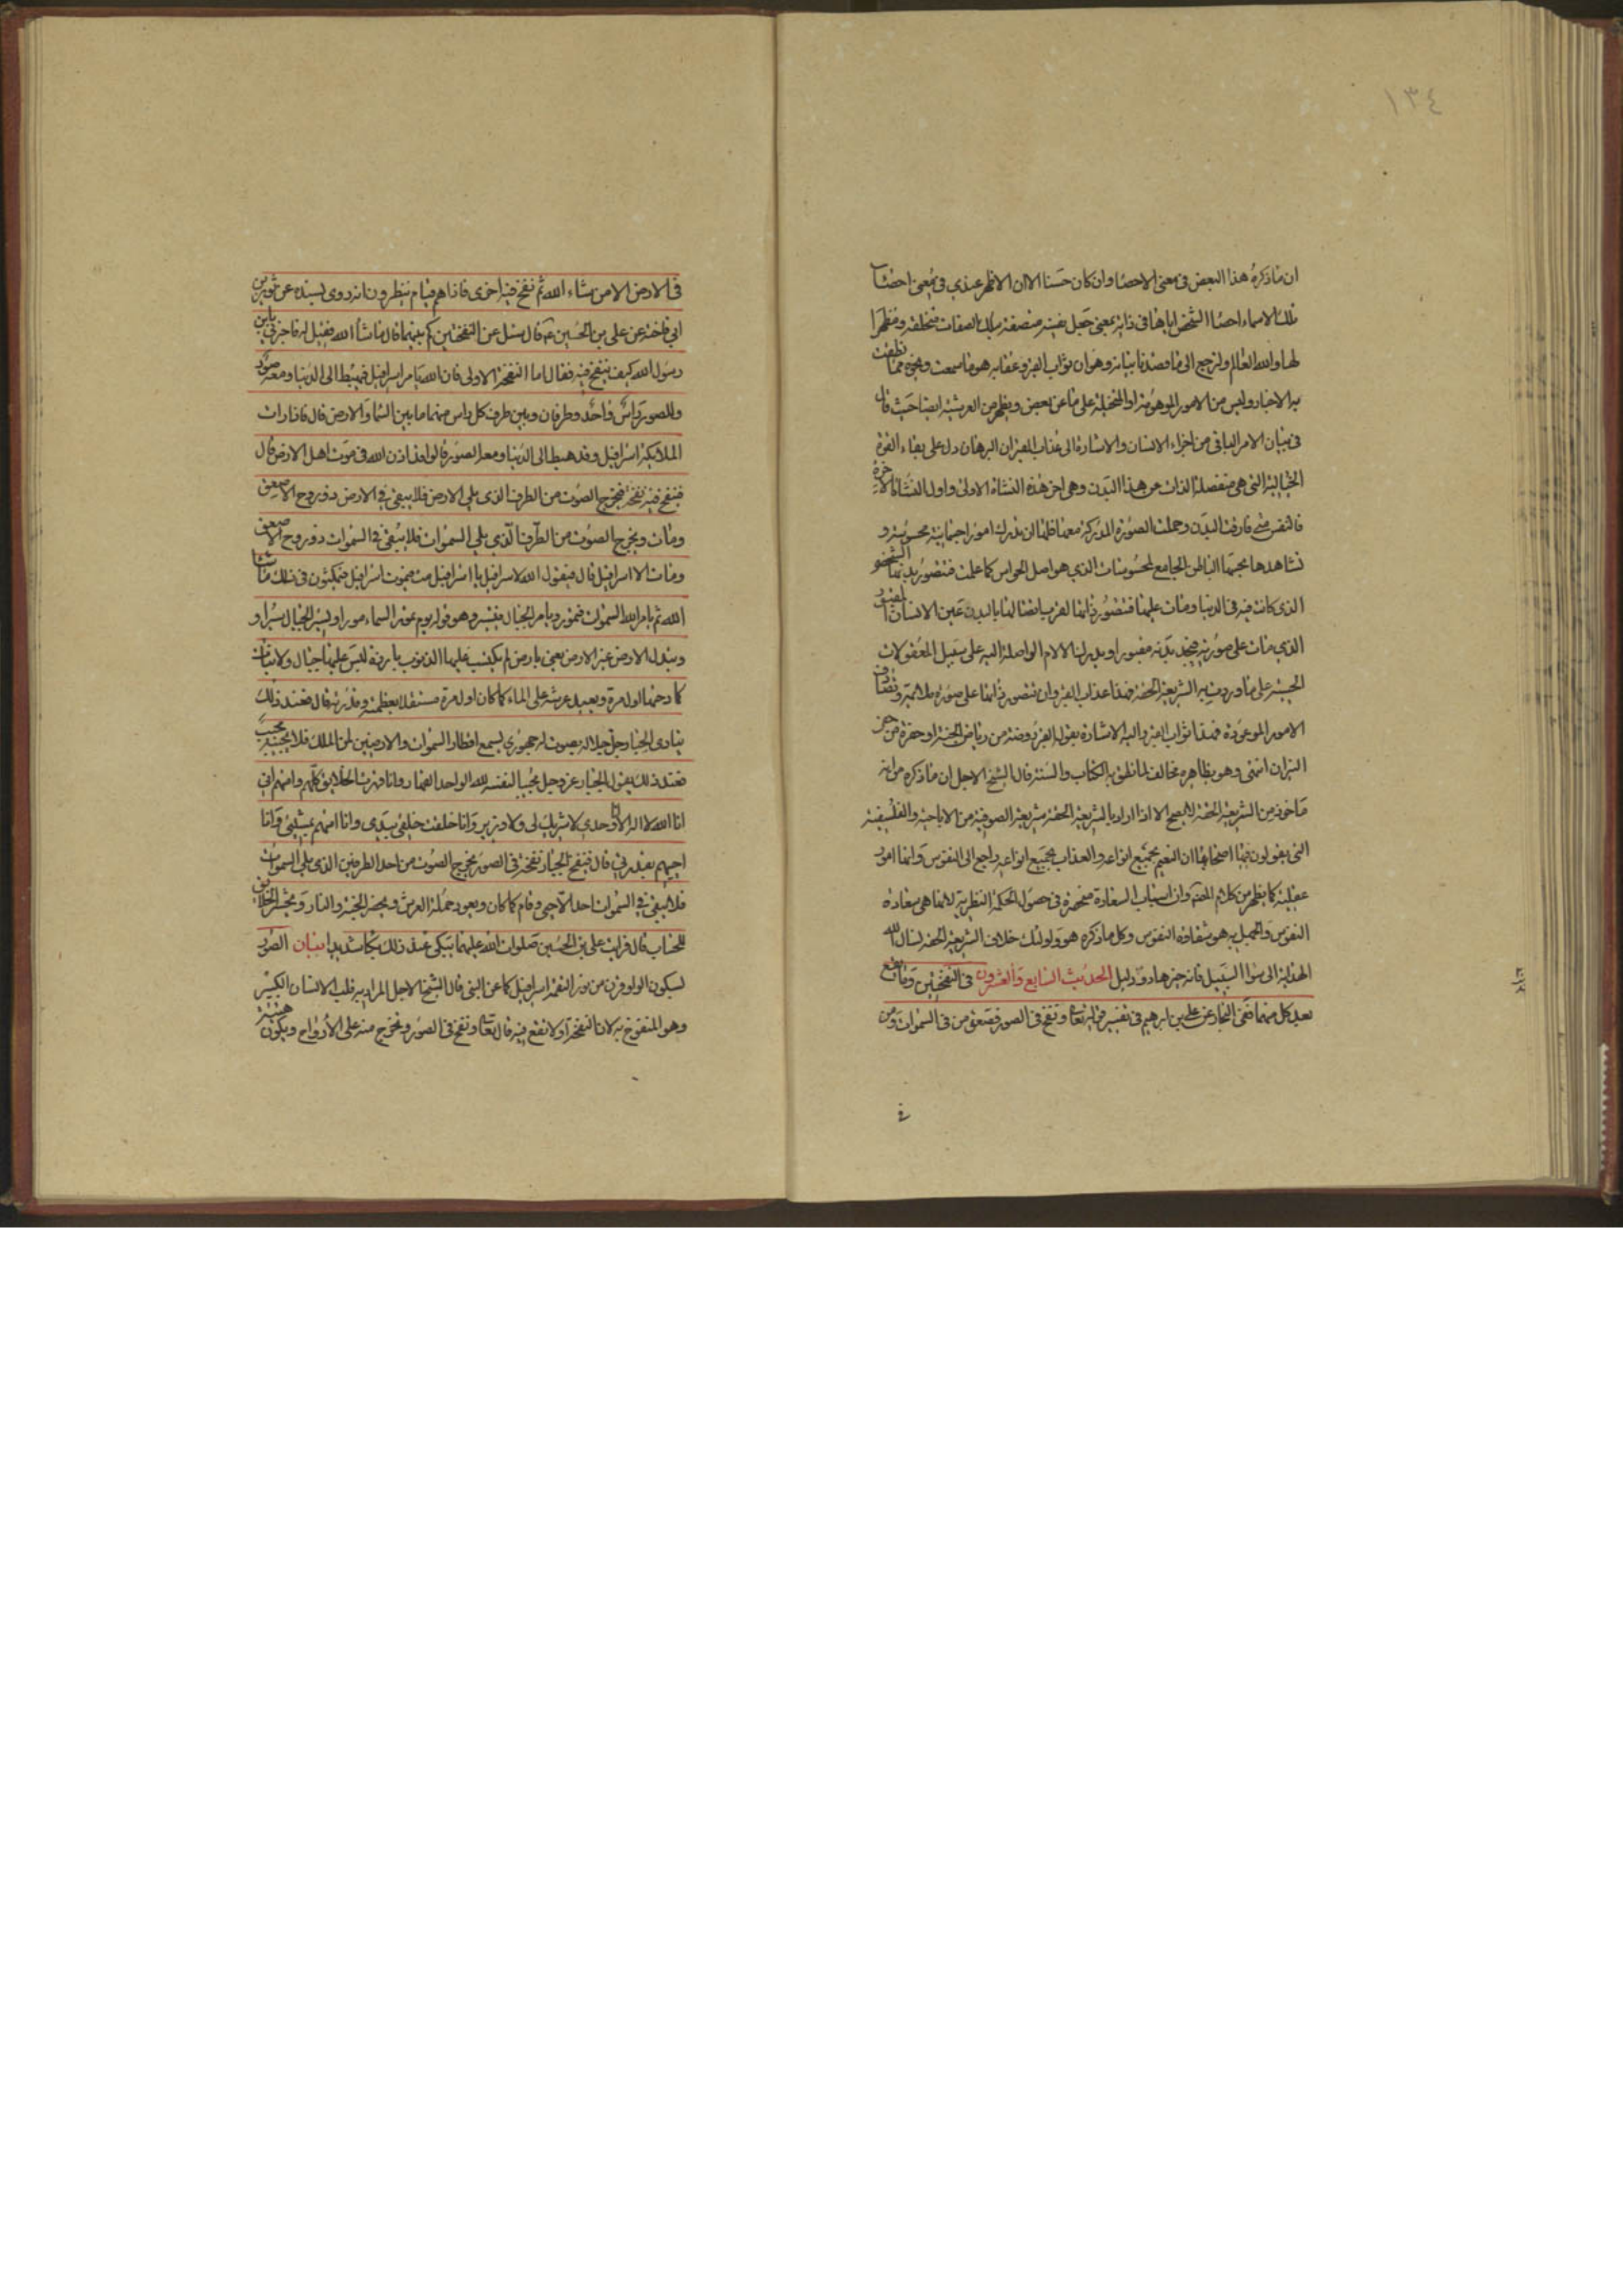 ١٣٤
ان ماذكره هذا البعض فى معنى الاحصا وان كان حسنا الا ان الاظهر عندي فى معنى احصاء
تلك الاسماء احصا الشخص اياها فى ذاته بمعنى جعل نفسه متصفة بتلك الصفات متخلقة ومظهرا
لها والله العالم ولنرجع الى ما قصدنا بيانه وهو ان ثواب القبر وعقابه هو ما سمعت ونحوه مما نطقت
به الاخبار وليس من الامور الموهومة او المتخيلة على ما عن بعض ويظهر من العرشية ايضا حيث قال
فى بيان الامر الباقى من اجزاء الانسان والاشارة الى عذاب القبر ان البرهان دل على بقاء القوة
الخيالية التى هى منفصلة الذات عن هذا البدن وهى اخر هذه النشاة الاولى واول النشاة الاخرة
فالنفس متى فارقت البدن وحملت الصورة المدركة معها فلها ان تدرك امورا جسمانية محسوسة و
تشاهدها بحسها الباطن الجامع لمحسوسات الذي هو اصل الحواس كما علمت فتتصور بدنها الشخصى
الذى كانت فيه فى الدنيا ومات عليها فتتصور ذاتها لقرب اتصالها بالبدن عين الانسان المقبور
الذي مات على صورته فيجد بدنه مقبورا ويدرك الالام الواصلة اليه على سبيل العقوبات
الحسية على ما وردت به الشريعة الحقة فهذا عذاب القبر وان تتصور ذاتها على صورة ملائمة وتصادف
الامور الموعودة فهذا ثواب القبر واليه الاشارة بقوله القبر روضة من رياض الجنة او حفرة من حفر
النيران انتهى وهو بظاهره مخالف لما نطق به الكتاب والسنة قال الشيخ الاجل ان ما ذكره من انه
ماخوذ من الشريعة الحقة لا يصح الا اذا اراد بالشريعة الحقة شريعة الصوفية من الاباحية والفلسفية
التى يقولون بها اصحابها ان النعيم بجميع انواعه والعذاب بجميع انواعه راجع الى النفوس وانها امور
عقلية كما يظهر من كلام وان اسباب السعادة منحصرة فى حصول الحكمة النظرية لانها هى سعادة
النفوس والجهل به هو شقاوة النفوس وكل ما ذكره هو واولئك خلاف الشريعة الحقة نسال الله
الهداية الى سوا السبيل فانه خير هاد ودليل الحديث السابع والعشرون فى النفختين وما يقع
بعد كل منهما ففى البحار عن على بن ابرهيم فى تفسير قوله تعالى ونفخ فى الصور فصعق من فى السموات ومن
فى
فى الارض الا من شاء الله ثم نفخ فيه اخرى فاذا هم قيام ينظرون انه روى بسنده عن ثوير بن
ابي فاخته عن على بن الحسين ع قال سئل عن النفختين كم بينهما قال ما شاء الله فقيل له فاخبرنى يا بن
رسول الله كيف ينفخ فيه فقال اما النفخة الاولى فان الله يامر اسرافيل فيهبط الى الدنيا ومعه صور
وللصور راس واحد وطرفان وبين طرف كل راس منهما ما بين السما والارض قال فاذا رات
الملائكة اسرافيل وقد هبط الى الدنيا ومعه الصور قالوا قد اذن الله فى موت اهل الارض قال
فينفخ فيه نفخة فيخرج الصوت من الطرف الذى يلى الارض فلا يبقى فى الارض ذو روح الا صعق
ومات ويخرج الصوت من الطرف الذي يلى السموات فلا يبقى فى السموات ذو روح الا صعق
ومات الا اسرافيل قال فيقول الله لاسرافيل يا اسرافيل مت فيموت اسرافيل فيمكثون فى ذلك ما شاء
الله ثم يامر الله السموات فتمور ويامر الجبال فتسير وهو قوله يوم تمور السماء مورا وتسير الجبال سيرا و
وتبدل الارض غير الارض يعنى بارض لم يكتسب عليها الذنوب بارزة ليس عليها جبال ولا نبات
كما دحيها اول مرة ويعيد عرشه على الماء كما كان اول مرة مستقلا بعظمته وقدرته قال فعند ذلك
ينادى الجبار جل جلاله بصوت له جهورى يسمع اقطار السموات والارضين لمن الملك فلا يجيبه مجيب
فعند ذلك يقول الجبار عز وجل مجيبا لنفسه لله الواحد القهار وانا قهرت الخلايق كلهم وامتهم انى
انا الله لا اله الا انا وحدي لا شريك لى ولا وزير وانا خلقت خلقى بيدى وانا امتهم بمشيتى وانا
احييهم بقدرتى قال فينفخ الجبار نفخة فى الصور يخرج الصوت من احد الطرفين الذى يلى السموات
فلا يبقى فى السموات احد الا حيى وقام كما كان ويعود حملة العرش ويحضر الجنة والنار ويحشر الخلائق
للحساب قال فرايت على بن الحسين صلوات الله عليهما يبكى عند ذلك بكاء شديدا بيان الصور
بسكون الواو قرن من نور التقمه اسرافيل كما عن النبى قال الشيخ الاجل المراد به قلب الانسان الكبير
وهو المنفوخ به لان النفخة اولا تقع فيه قال تعالى ونفخ فى الصور وتخرج منه على الارواح ويكون هيئته